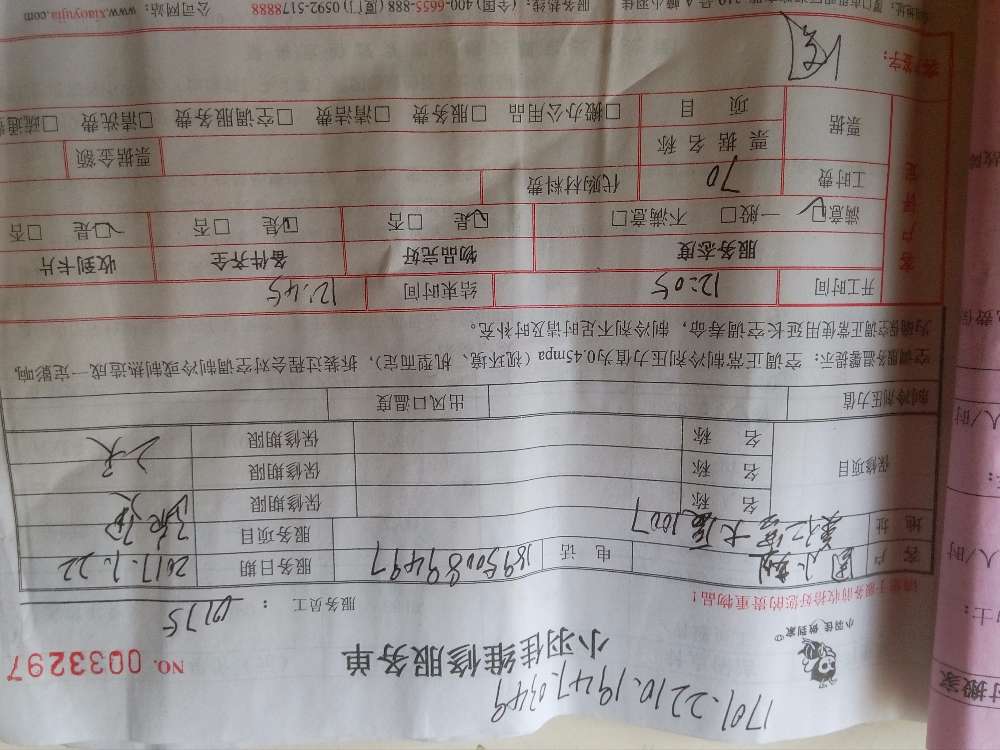 1701.2210.1947.0349
小羽佳 做到家
小羽佳维修服务单
NO. 0033297
请您于服务前收拾好您的贵重物品！
服务员工： 0175
客户 电话 18950089497 服务日期 2017.1.22
地址 大厦1007 服务项目
保修项目 名称 保修期限
名称 保修期限
名称 保修期限
制冷剂压力值 出风口温度
空调服务温馨提示：空调正常制冷剂压力值为0.45mpa（视环境、机型而定），拆装过程会对空调制冷或制热造成一定影响，
为确保空调正常使用延长空调寿命，制冷剂不足时请及时补充。
开工时间 12:05 结束时间 12:45
客户评定
服务态度 物品完好 备件齐全 收到卡片
满意□ 一般□ 不满意□ □是 □否 □是 □否 □是 □否
工时费 70 代购材料费
票据 票据名称 票据金额
项目 □搬办公用品 □服务费 □清洁费 □空调服务费 □清洗费 □疏通
客户签字：
服务热线：（全国）400-6655-888（厦门）0592-5178888 公司网站：www.xiaoyujia.com